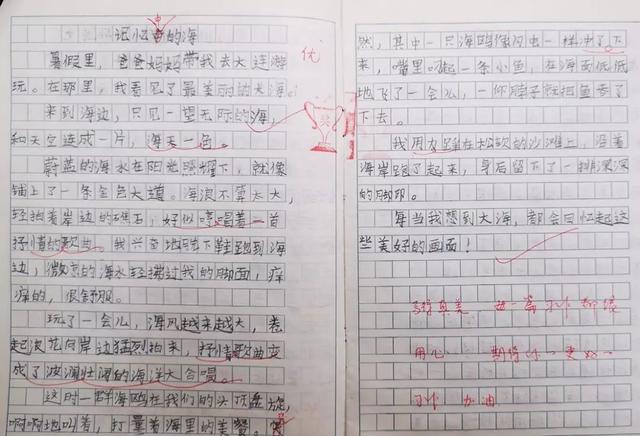 记忆中的海
优
暑假里，爸爸妈妈带我去大连游
玩。在那里，我看见了最美丽的大海。
来到海边，只见一望无际的海，
和天空连成一片，海天一色。
蔚蓝的海水在阳光照耀下，就像
铺上了一条金色大道。海浪不算太大，
轻拍着岸边的礁石，好似哼唱着一首
抒情的歌曲。我兴奋地脱下鞋跑到海
边，微凉的海水轻拂过我的脚面，痒
痒的，很舒服。
玩了一会儿，海风越来越大，卷
起浪花向岸边猛烈拍来，抒情歌曲变
成了波澜壮阔的海洋大合唱。
这时一群海鸥在我们的头顶盘旋，
啊啊地叫着，打量着海里的美餐。突
奖
然，其中一只海鸥像闪电一样冲了下
来，嘴里叼起一条小鱼，在海面低低
地飞了一会儿，一仰脖子就把鱼吞了
下去。
我用力踩在松软的沙滩上，沿着
海岸跑了起来，身后留下了一排深深
的脚印。
每当我想到大海，都会回忆起这
些美好的画面！
真美 一篇 都很
用心 期待 更好
加油